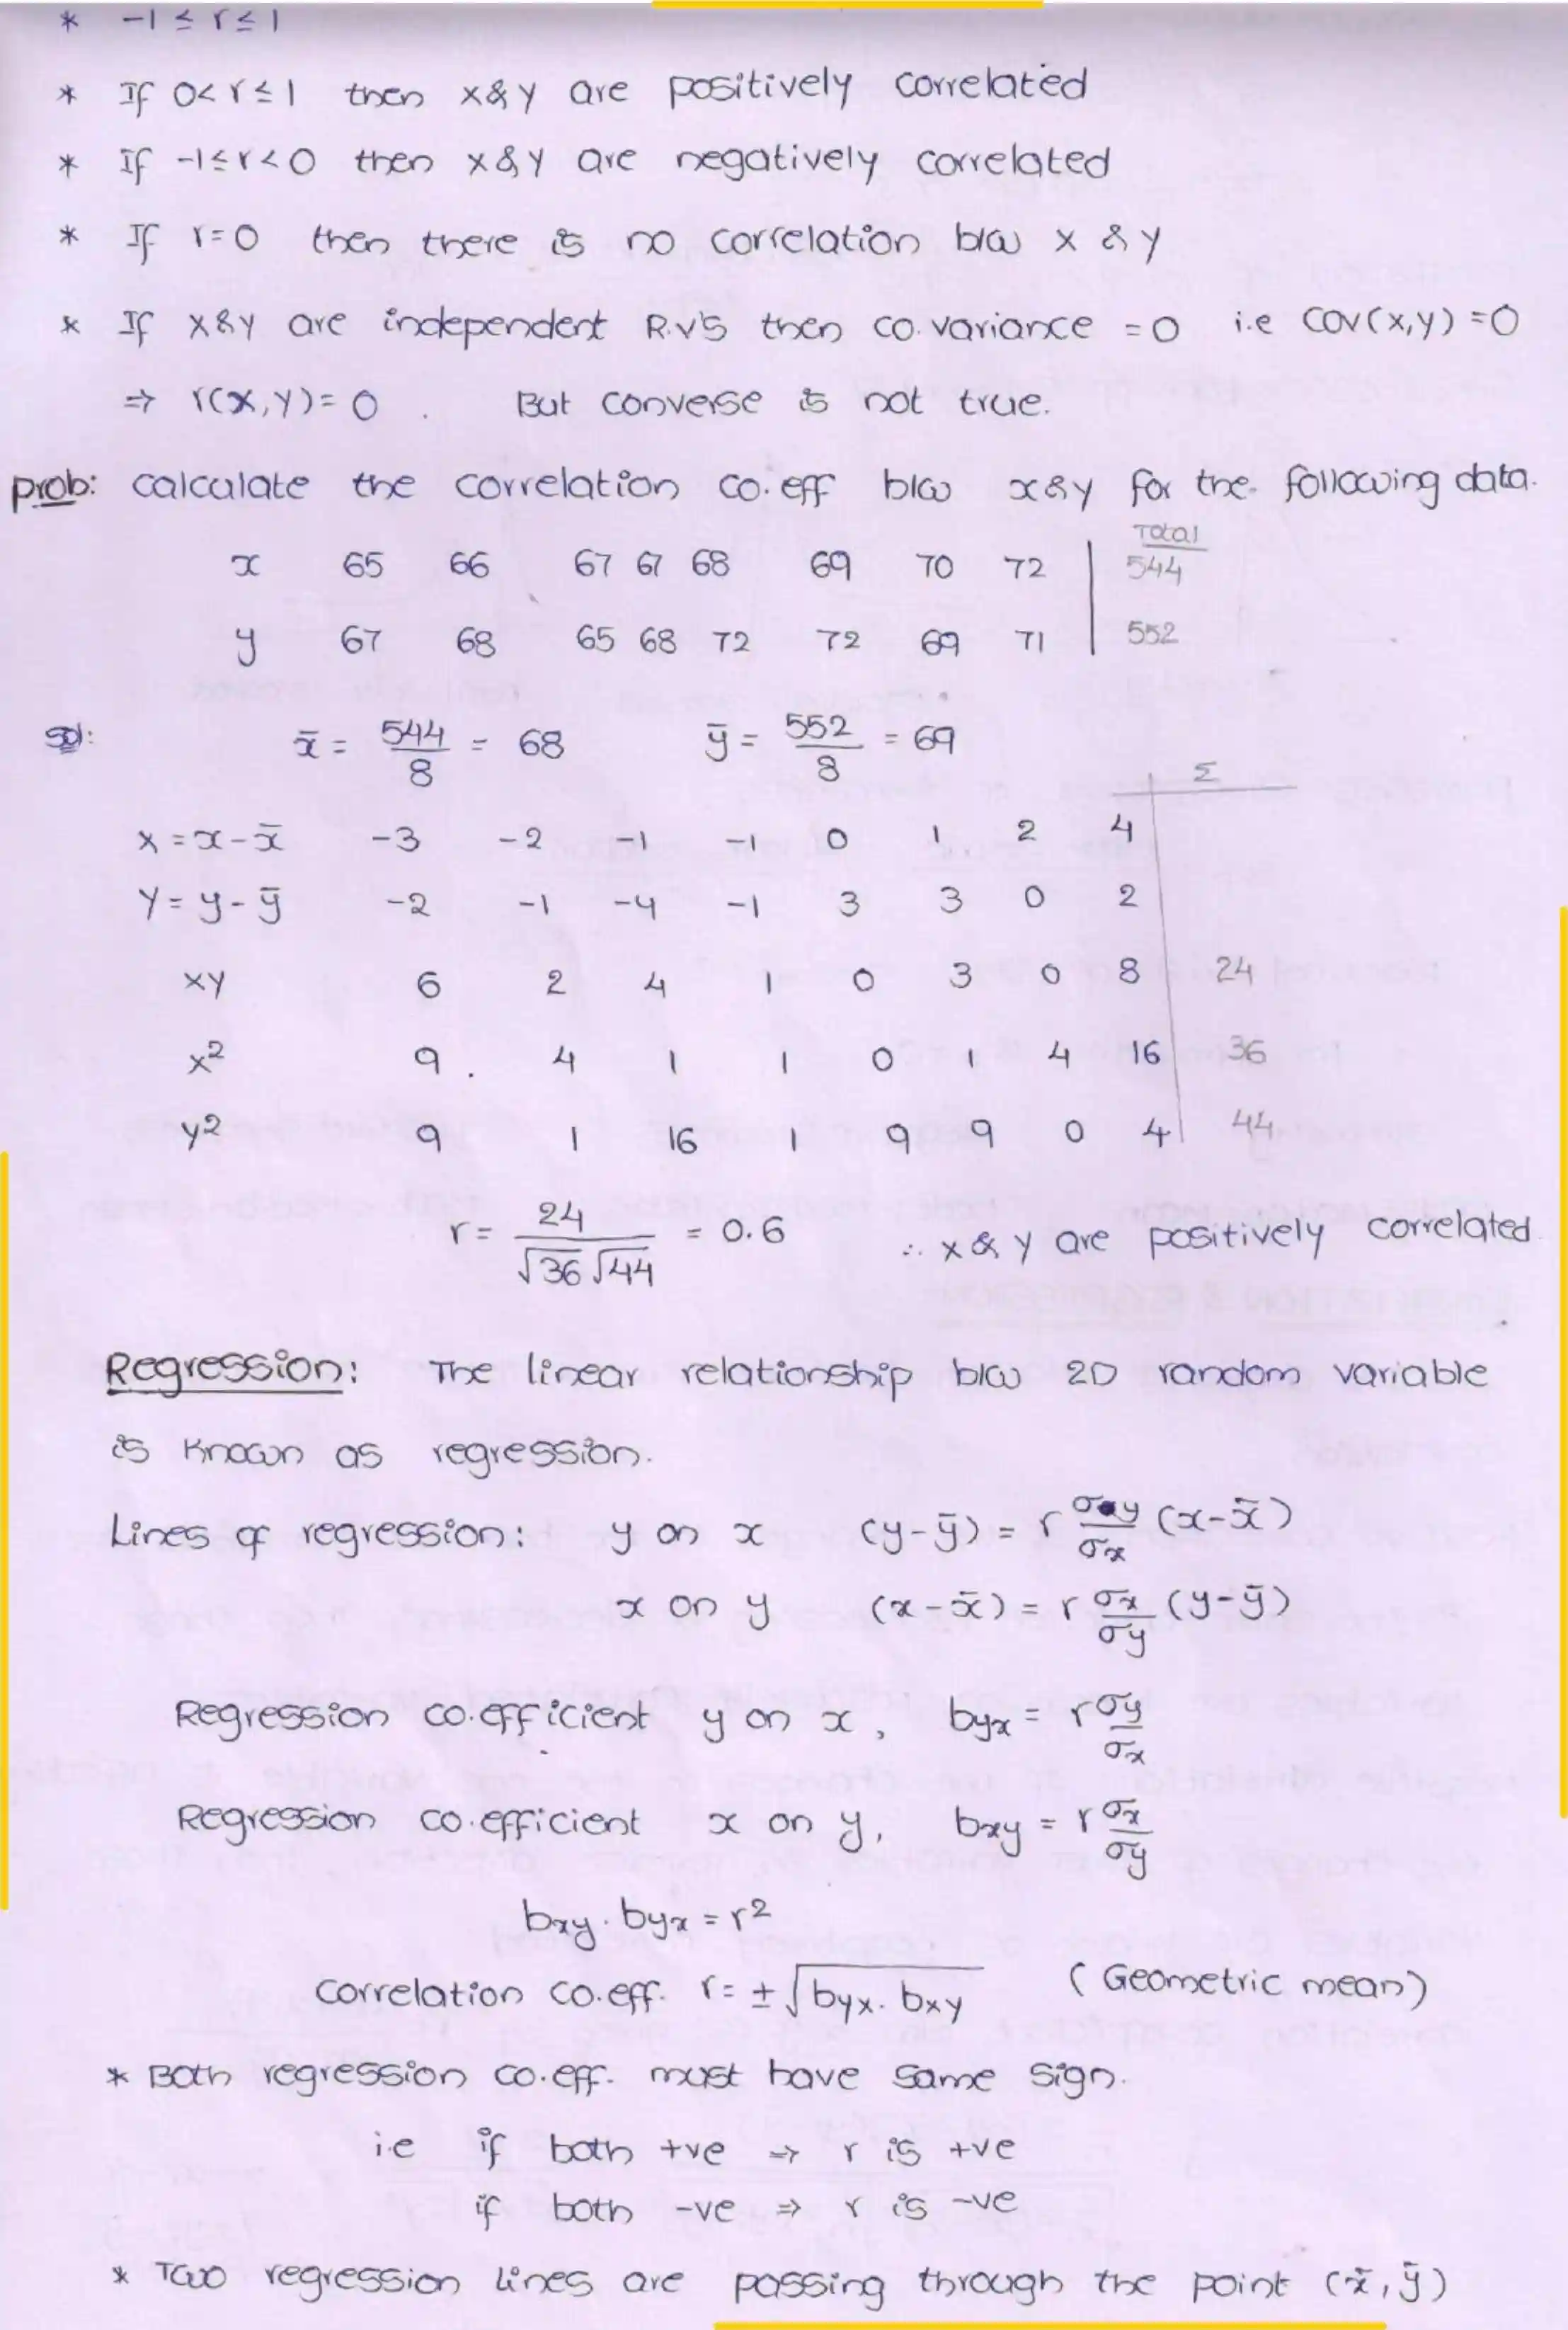 * -1 ≤ r ≤ 1
* If 0< r ≤ 1 then x & y are positively correlated
* If -1 ≤ r < 0 then x & y are negatively correlated
* If r = 0 then there is no correlation b/w x & y
* If x & y are independent R.V's then co.variance = 0 i.e COV(x,y) = 0
⇒ r(x,y) = 0 . But converse is not true.
prob: calculate the correlation co.eff b/w x & y for the following data.
Total
x 65 66 67 67 68 69 70 72 544
y 67 68 65 68 72 72 69 71 552
Sol: x̄ = 544/8 = 68 ȳ = 552/8 = 69
Σ
X = x - x̄ -3 -2 -1 -1 0 1 2 4
Y = y - ȳ -2 -1 -4 -1 3 3 0 2
XY 6 2 4 1 0 3 0 8 24
X² 9 4 1 1 0 1 4 16 36
Y² 9 1 16 1 9 9 0 4 44
r = 24/√36 √44 = 0.6 ∴ x & y are positively correlated.
Regression: The linear relationship b/w 2D random variable
is known as regression.
Lines of regression: y on x (y - ȳ) = r σy/σx (x - x̄)
x on y (x - x̄) = r σx/σy (y - ȳ)
Regression co.efficient y on x, byx = r σy/σx
Regression co.efficient x on y, bxy = r σx/σy
bxy . byx = r²
Correlation co.eff. r = ± √byx. bxy (Geometric mean)
* Both regression co.eff. must have same sign.
i.e if both +ve ⇒ r is +ve
if both -ve ⇒ r is -ve
* Two regression lines are passing through the point (x̄, ȳ)